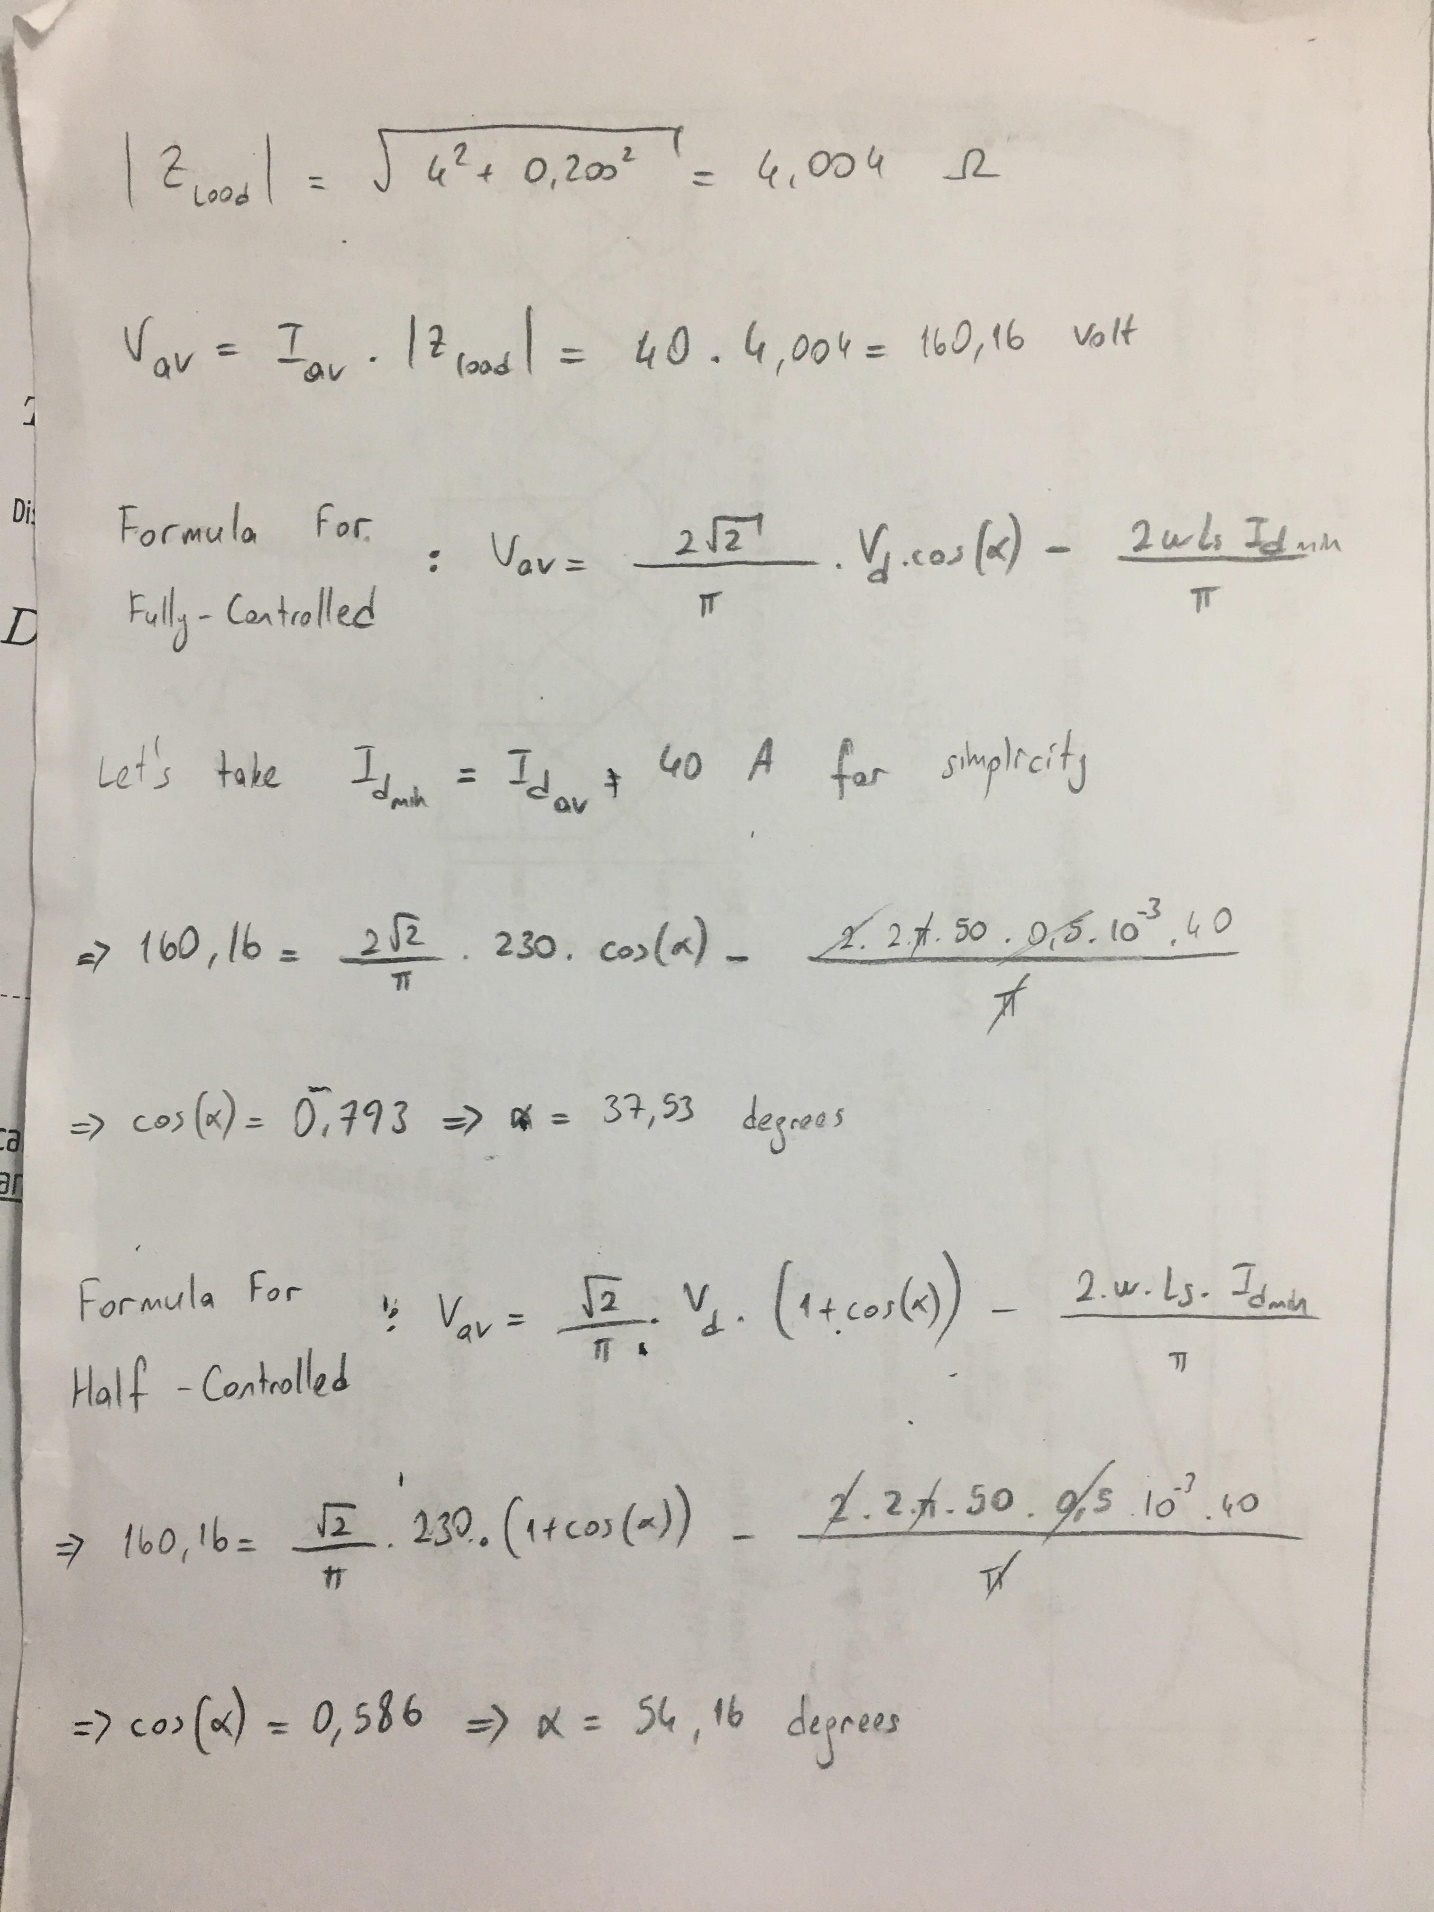 |Z_load| = √(4² + 0,200²) = 4,004 Ω
V_av = I_av . |Z_load| = 40 . 4,004 = 160,16 volt
Formula For Fully-Controlled : V_av = 2√2/π . V_d . cos(α) - 2wLs I_dmin/π
Let's take I_dmin = I_dav = 40 A for simplicity
=> 160,16 = 2√2/π . 230 . cos(α) - 2.2.π.50.0,5.10^-3.40/π
=> cos(α) = 0,793 => α = 37,53 degrees
Formula For Half-Controlled : V_av = √2/π . V_d . (1+cos(α)) - 2.w.Ls.I_dmin/π
=> 160,16 = √2/π . 230 . (1+cos(α)) - 2.2.π.50.0,5.10^-3.40/π
=> cos(α) = 0,586 => α = 54,16 degrees
Di
D
ca
ar